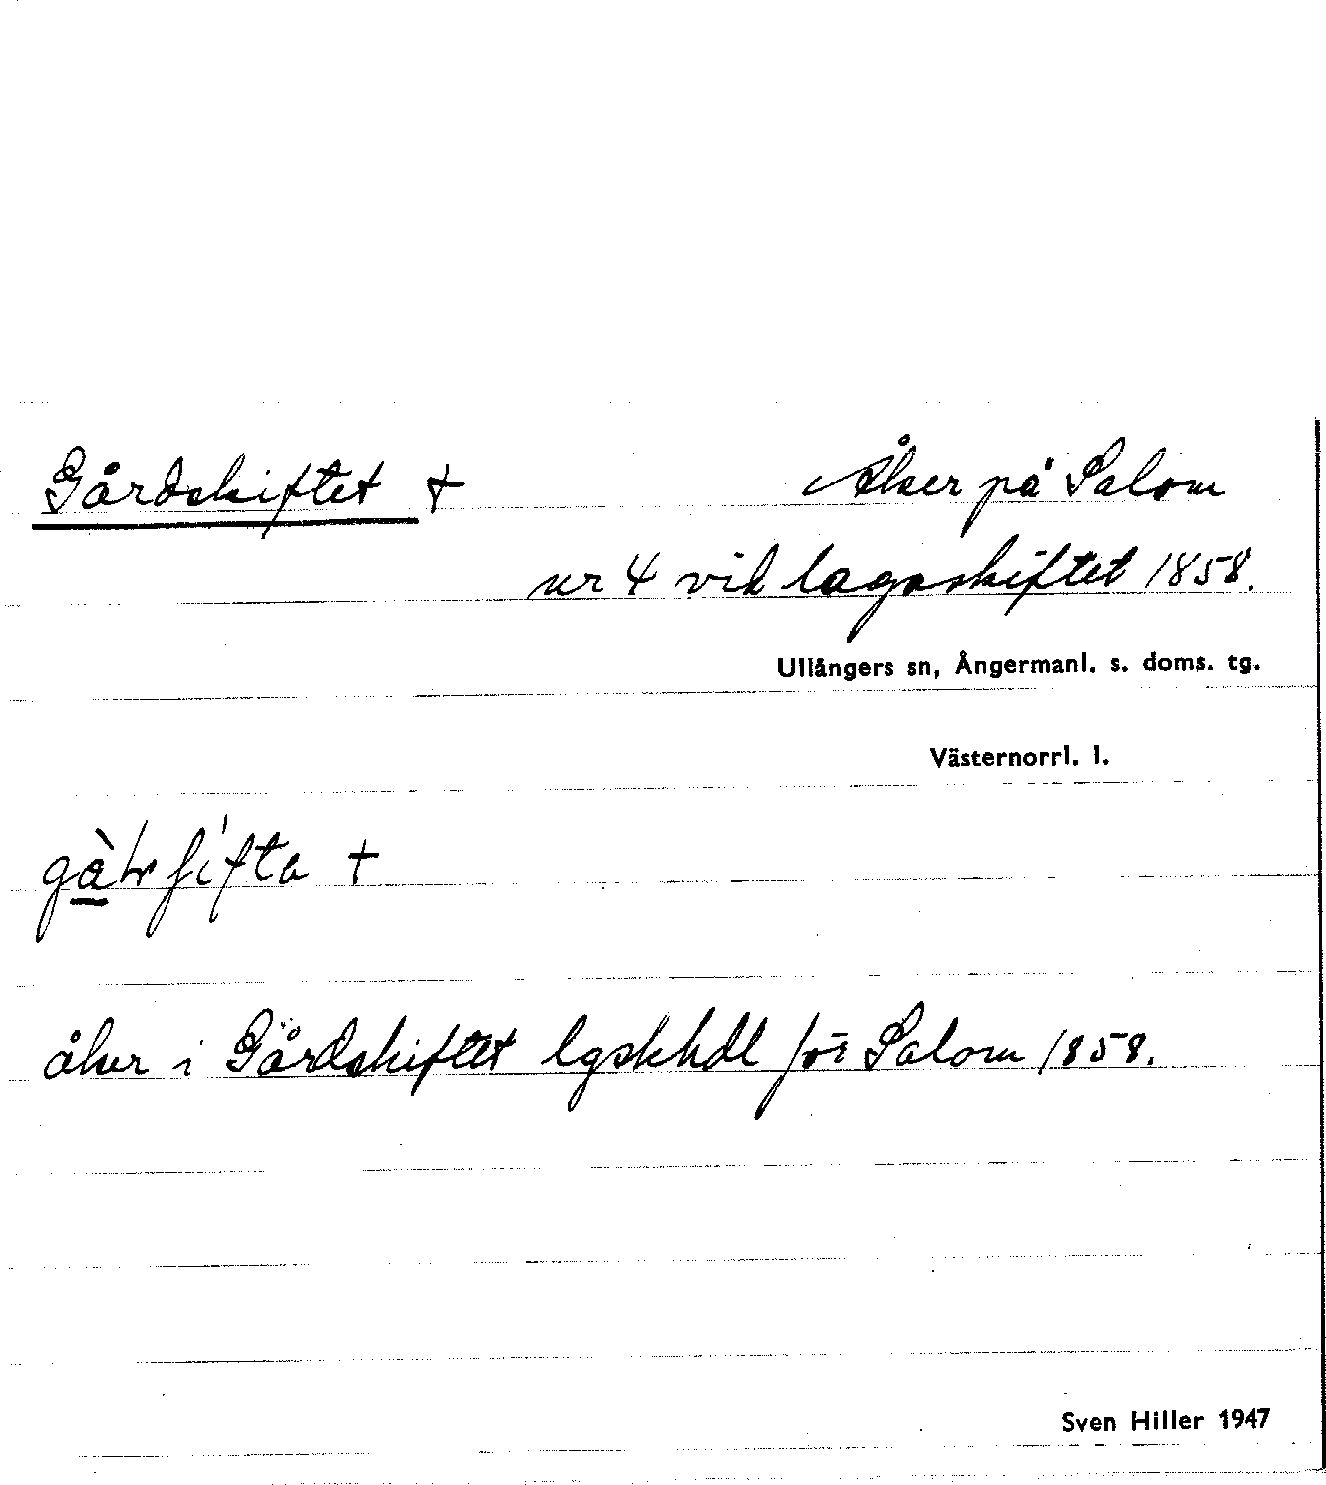 Gårdskiftet + Åker på Salom
nr 4 vid lagaskiftet 1858.
Ullångers sn, Ångermanl. s. doms. tg.
Västernorrl. l.
åker i Gårdskiftet lgskhdl för Salom 1858.
Sven Hiller 1947